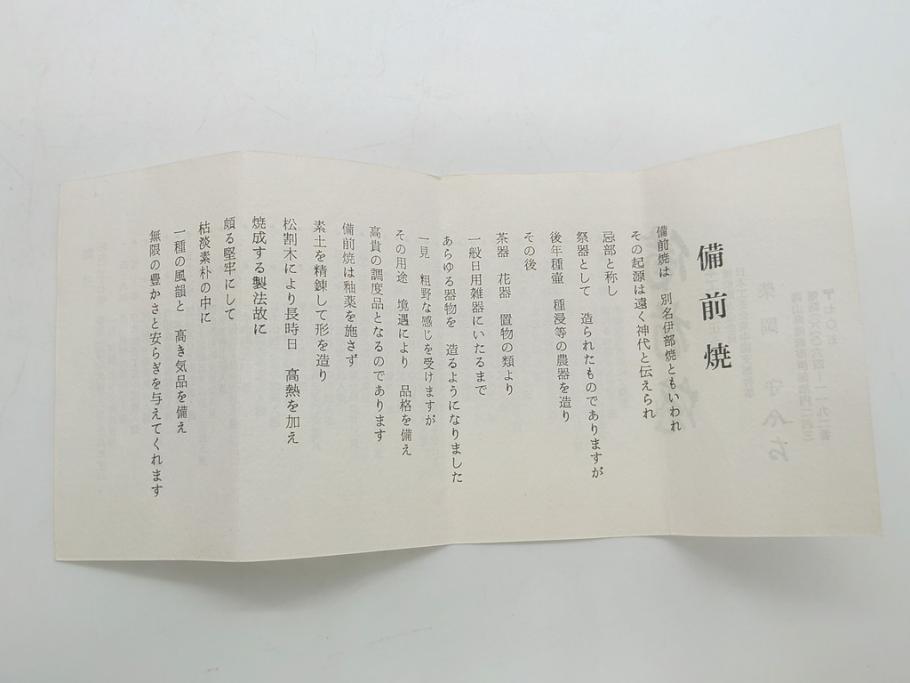 備前焼
備前焼は 別名伊部焼ともいわれ
その起源は遠く神代と伝えられ
忌部と称し
祭器として 造られたものでありますが
後年種壷 種浸等の農器を造り
その後
茶器 花器 置物の類より
一般日用雑器にいたるまで
あらゆる器物を 造るようになりました
一見 粗野な感じを受けますが
その用途 境遇により 品格を備え
高貴の調度品となるのであります
備前焼は釉薬を施さず
素土を精錬して形を造り
松割木により長時日 高熱を加え
焼成する製法故に
頗る堅牢にして
枯淡素朴の中に
一種の風韻と 高き気品を備え
無限の豊かさと安らぎを与えてくれます